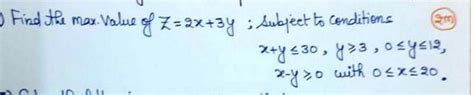 Find the max. Value of Z=2x+3y ; Subject to conditions (2m)
x+y≤30, y≥3, 0≤y≤12,
x-y≥0 with 0≤x≤20.